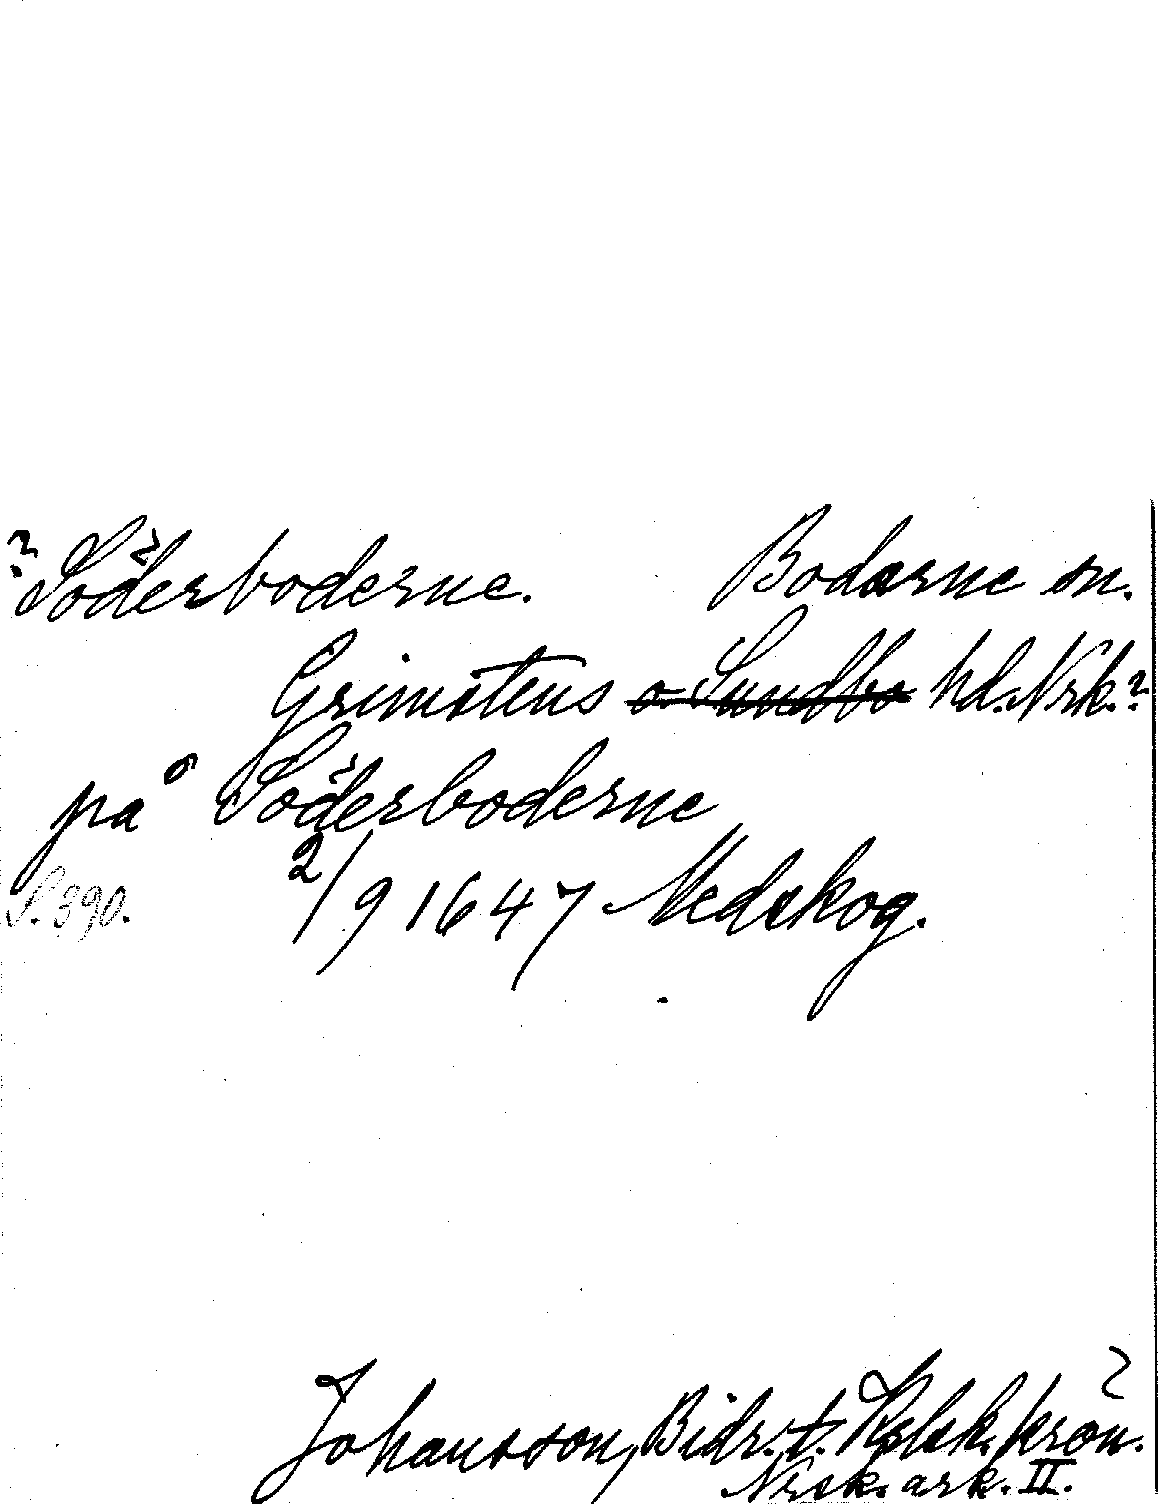 ? Söderboderne. Bodarne sn.
Grimstens o. Sundbo hd. Nrk.?
på Söderboderne
2/9 1647 Medskog.
S. 390.
Johansson, Bidr. t. Hglsk. krön.
Nrsk. ark. II.